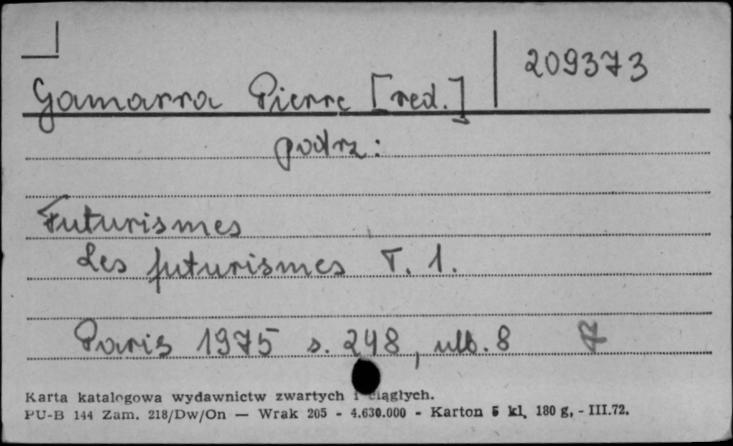 209373
Gamarra Pierre [red.]
podrz:
Futurismes
Les futurismes T. 1.
Paris 1975 s. 248, ulb. 8 7
Karta katalogowa wydawnictw zwartych i ciągłych.
PU-B 144 Zam. 218/Dw/On — Wrak 205 - 4.630.000 - Karton 5 kl, 180 g, - III.72.